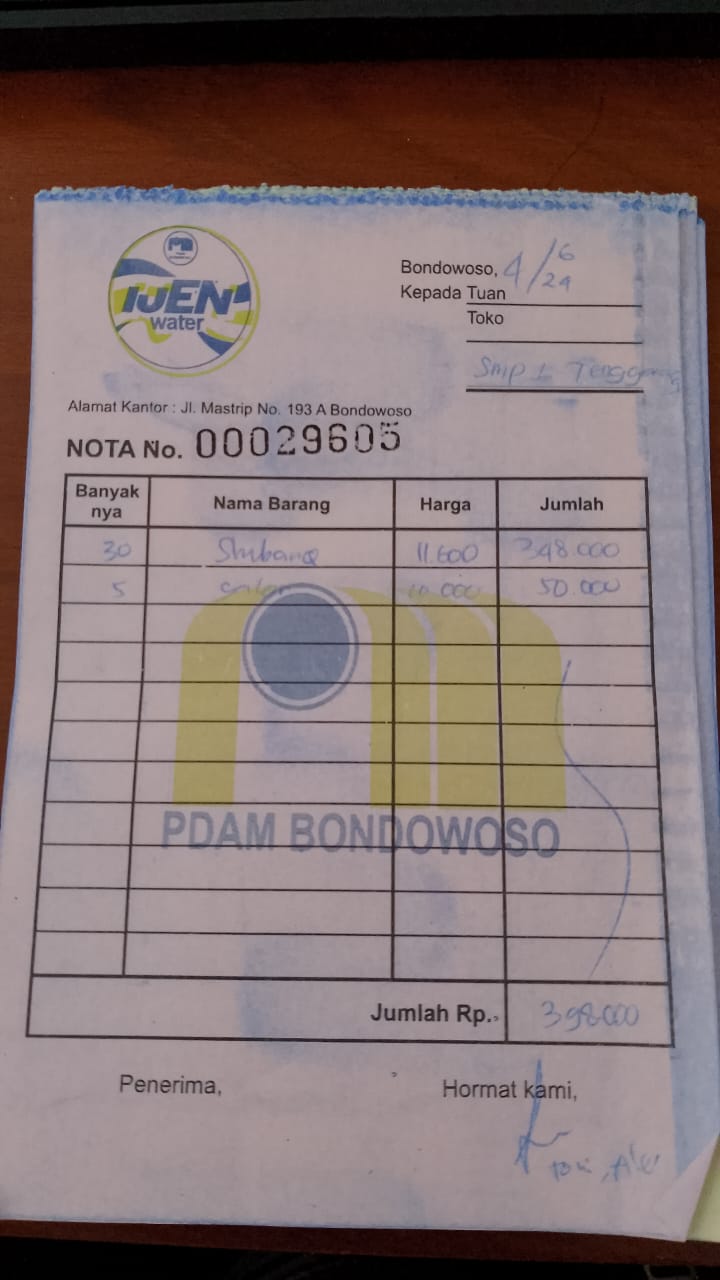 IJEN
water
Bondowoso, 4/6/24
Kepada Tuan
Toko
Smp 1 Tenggarang
Alamat Kantor : Jl. Mastrip No. 193 A Bondowoso
NOTA No. 00029605
Banyak nya Nama Barang Harga Jumlah
30 11.600 348.000
5 galon 10.000 50.000
PDAM BONDOWOSO
Jumlah Rp. 398.000
Penerima, Hormat kami,